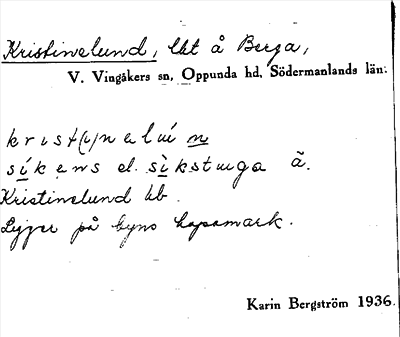 Kristinelund, lht å Berga,
V. Vingåkers sn, Oppunda hd, Södermanlands län.
krist(i)nelun
síkens el. sìkstuga ã.
Kristinelund hb.
Ligger på byns hopamark.
Karin Bergström 1936.